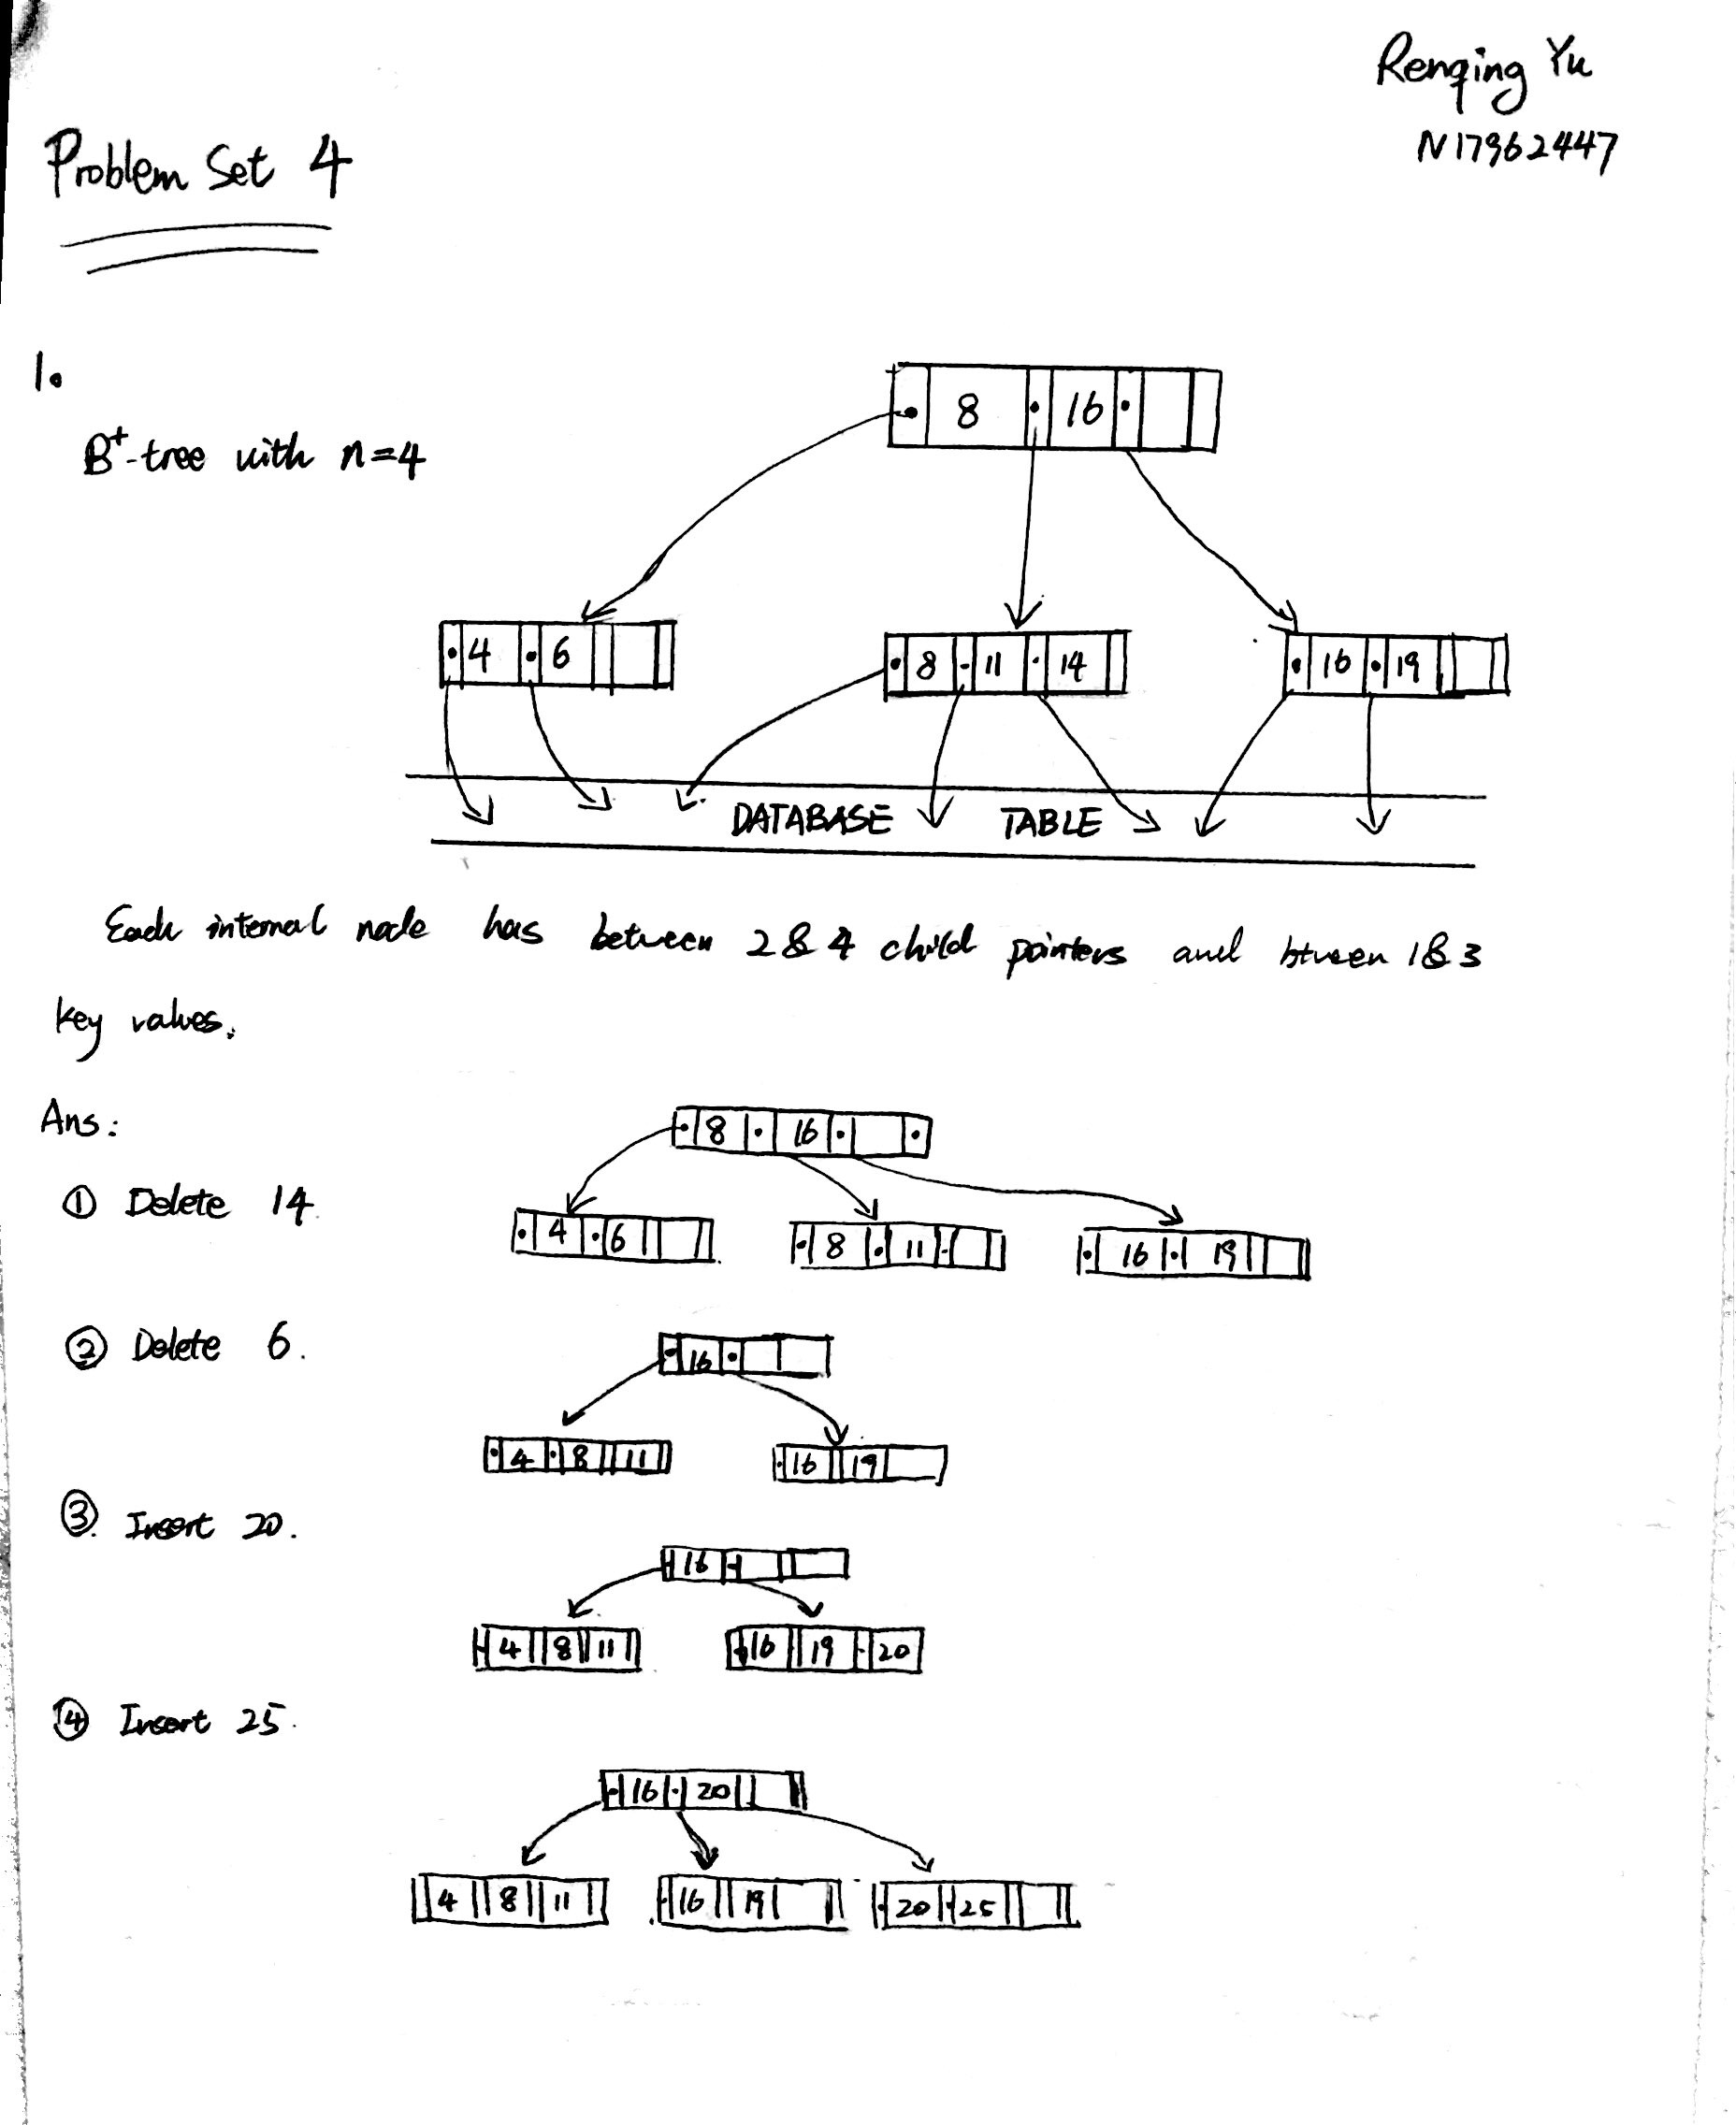 Renqing Yu
N17962447
Problem Set 4
1.
B+-tree with n=4
8 16
4 6 8 11 14 16 19
DATABASE TABLE
Each internal node has between 2 & 4 child pointers and btween 1 & 3
key values.
Ans:
8 16
① Delete 14.
4 6 8 11 16 19
② Delete 6.
16
4 8 11 16 19
③. Insert 20.
16
4 8 11 16 19 20
④ Insert 25.
16 20
4 8 11 16 19 20 25